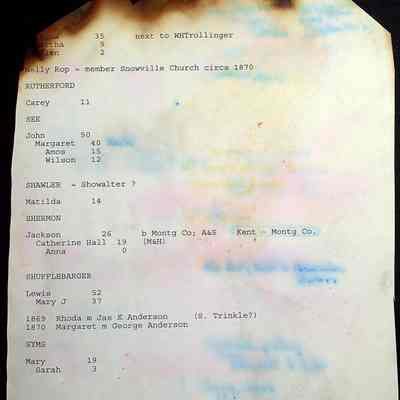 35 next to WHTrollinger
9
2
Nelly Rop - member Snowville Church circa 1870
RUTHERFORD
Carey 11
SEE
John 50
Margaret 40
Amos 15
Wilson 12
SHAWLER - Showalter ?
Matilda 14
SHERMON
Jackson 26 b Montg Co; A&S Kent - Montg Co.
Catherine Hall 19 (M&H)
Anna 0
SHUFFLEBARGER
Lewis 52
Mary J 37
1869 Rhoda m Jas K Anderson (S. Trinkle?)
1870 Margaret m George Anderson
SYMS
Mary 19
Sarah 3